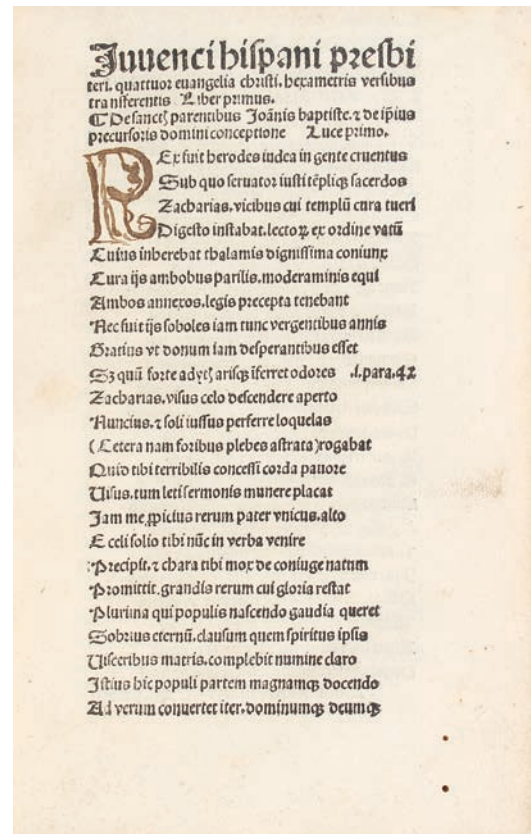 Juuenci hispani presbi
teri. quattuor euangelia christi. hexametris versibus
transferentis Liber primus.
¶ De sanctꝭ parentibus Joānis baptiste. ⁊ de ip̄ius
precursoris domini conceptione Luce primo.
REx fuit herodes iudea in gente cruentus
Sub quo seruator iusti tēpliqꝫ sacerdos
Zacharias. vicibus cui templū cura tueri
Digesto instabat. lectoꝝ ex ordine vatū
Cuius inherebat thalamis dignissima coniunx
Cura ijs ambobus parilis. moderaminis equi
Ambos annexos. legis precepta tenebant
Nec fuit ijs soboles iam tunc vergentibus annis
Gratius vt donum iam desperantibus esset
Sꝫ quū forte adytꝭ arisqꝫ īferret odores .i. para. 42
Zacharias. visus celo descendere aperto
Nuncius. ⁊ soli iussus perferre loquelas
(Cetera nam foribus plebes astrata) rogabat
Quid tibi terribilis concussit corda pauore
Uisus. tum leti sermonis munere placat
Jam me ꝓpicius rerum pater vnicus. alto
E celi solio tibi nūc in verba venire
Precipit. ⁊ chara tibi mox de coniuge natum
Promittit. grandis rerum cui gloria restat
Plurima qui populis nascendo gaudia queret
Sobrius eternū. clausum quem spiritus ipsis
Uisceribus matris. complebit numine claro
Istius hic populi partem magnamqꝫ docendo
Ad verum conuertet iter. dominumqꝫ deumqꝫ